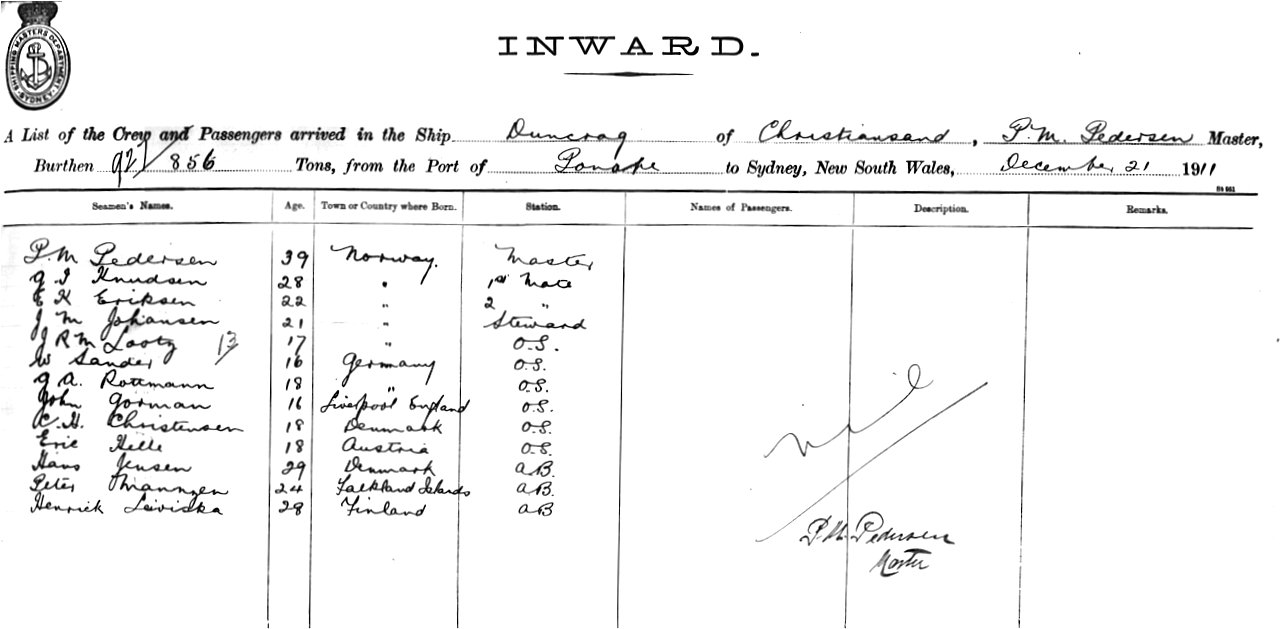 SHIPPING MASTERS DEPARTMENT SYDNEY
INWARD.
A List of the Crew and Passengers arrived in the Ship Duncrag of Christiansand, P. M. Pedersen Master,
Burthen 856 Tons, from the Port of Ponape to Sydney, New South Wales, December 21 1911
Seamen's Names. Age. Town or Country where Born. Station. Names of Passengers. Description. Remarks.
P. M Pedersen 39 Norway. Master
28 " 1st Mate
E K Eriksen 22 " 2 "
J M Johansen 21 " Steward
J R M Lootz 13 17 " O.S.
W Sander 16 Germany O.S.
G A. Rottmann 18 " O.S.
John Gorman 16 Liverpool England O.S.
C. H. Christensen 18 Denmark O.S.
Eric Helle 18 Austria O.S.
Hans Jensen 29 Denmark A.B.
Peter 24 Falkland Islands A.B.
Henrick Leiviska 28 Finland A.B
nil
P. M. Pedersen
Master